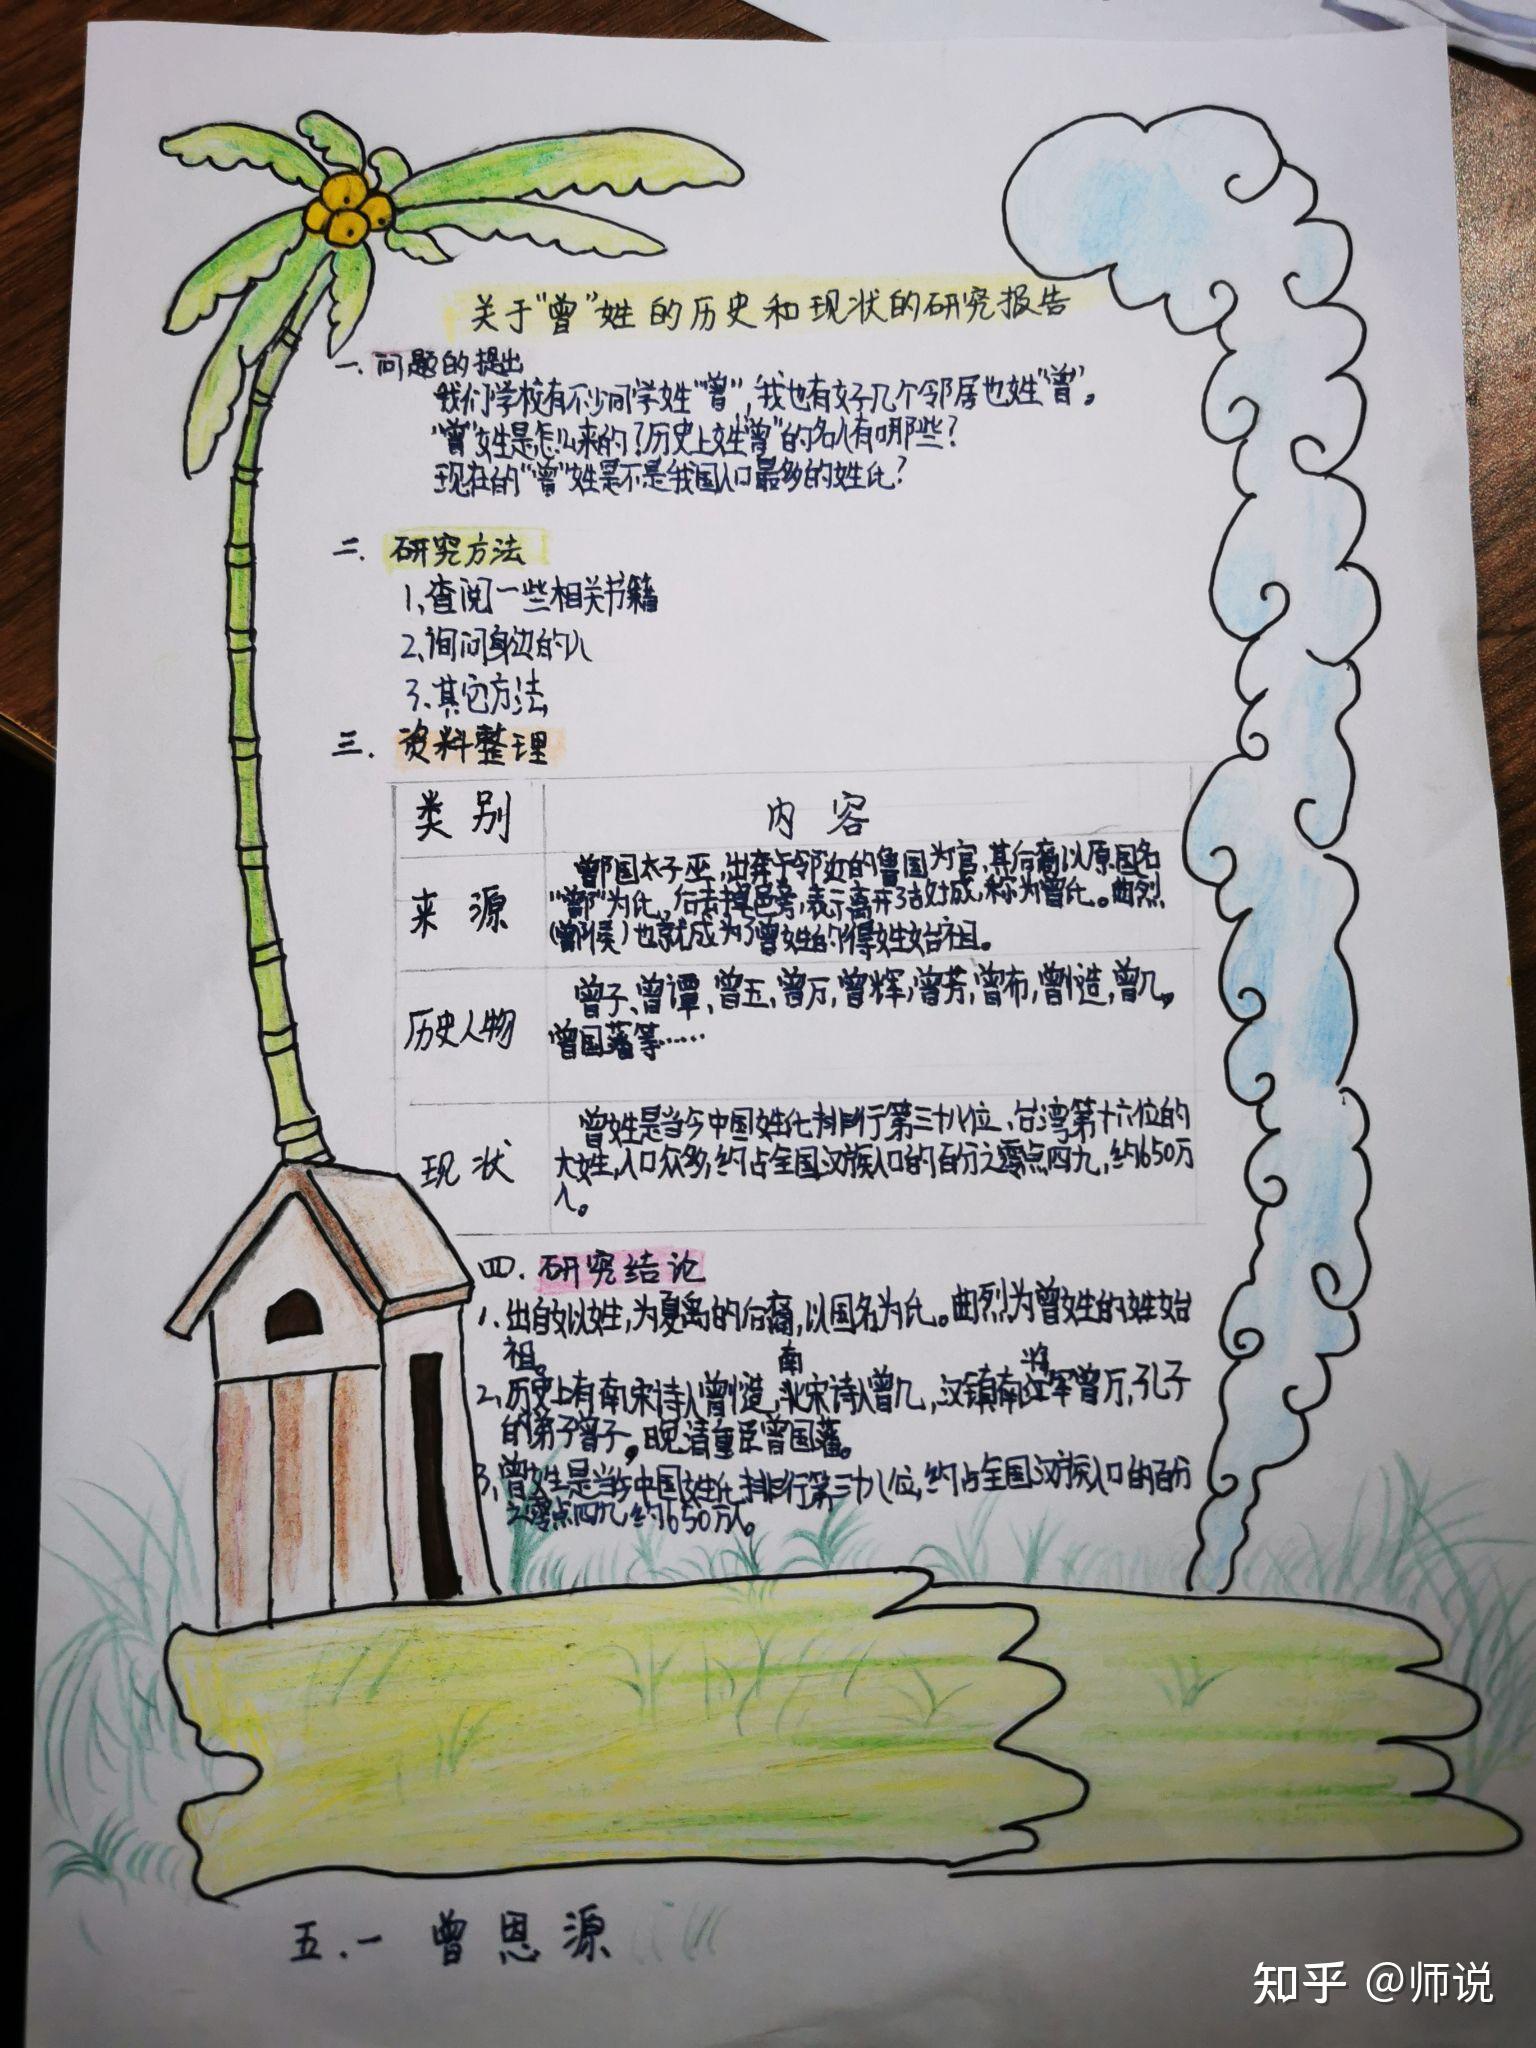 关于“曾”姓的历史和现状的研究报告
一.问题的提出
我们学校有不少同学姓“曾”,我也有好几个邻居也姓“曾”。
“曾”姓是怎么来的？历史上姓“曾”的名人有哪些？
现在的“曾”姓是不是我国人口最多的姓氏？
二.研究方法
1、查阅一些相关书籍
2、询问身边的人
3、其它方法
三.资料整理
类别 内容
来源
鄫国太子巫,出奔于邻近的鲁国为官、其后裔以原国名
“鄫”为氏,后去掉邑旁,表示离开了故城,称为曾氏。曲烈
(鄫侯)也就成为了曾姓的得姓始祖。
历史人物
曾子、曾谭、曾五、曾万,曾辉,曾芳,曾布,曾慥,曾几,
曾国藩等……
现状
曾姓是当今中国姓氏排行第三十八位、台湾第十六位的
大姓,人口众多,约占全国汉族人口的百分之零点四九,约650万
人。
四.研究结论
1、出自姒姓,为夏禹的后裔,以国名为氏。曲烈为曾姓的姓始
祖。
2、历史上有南宋诗人曾慥,南宋诗人曾几,汉镇南将军曾万,孔子
的弟子曾子,晚清重臣曾国藩。
3、曾姓是当今中国姓氏排行第三十八位,约占全国汉族人口的百分
之零点四九,约650万人。
五.一 曾恩源
知乎 @师说